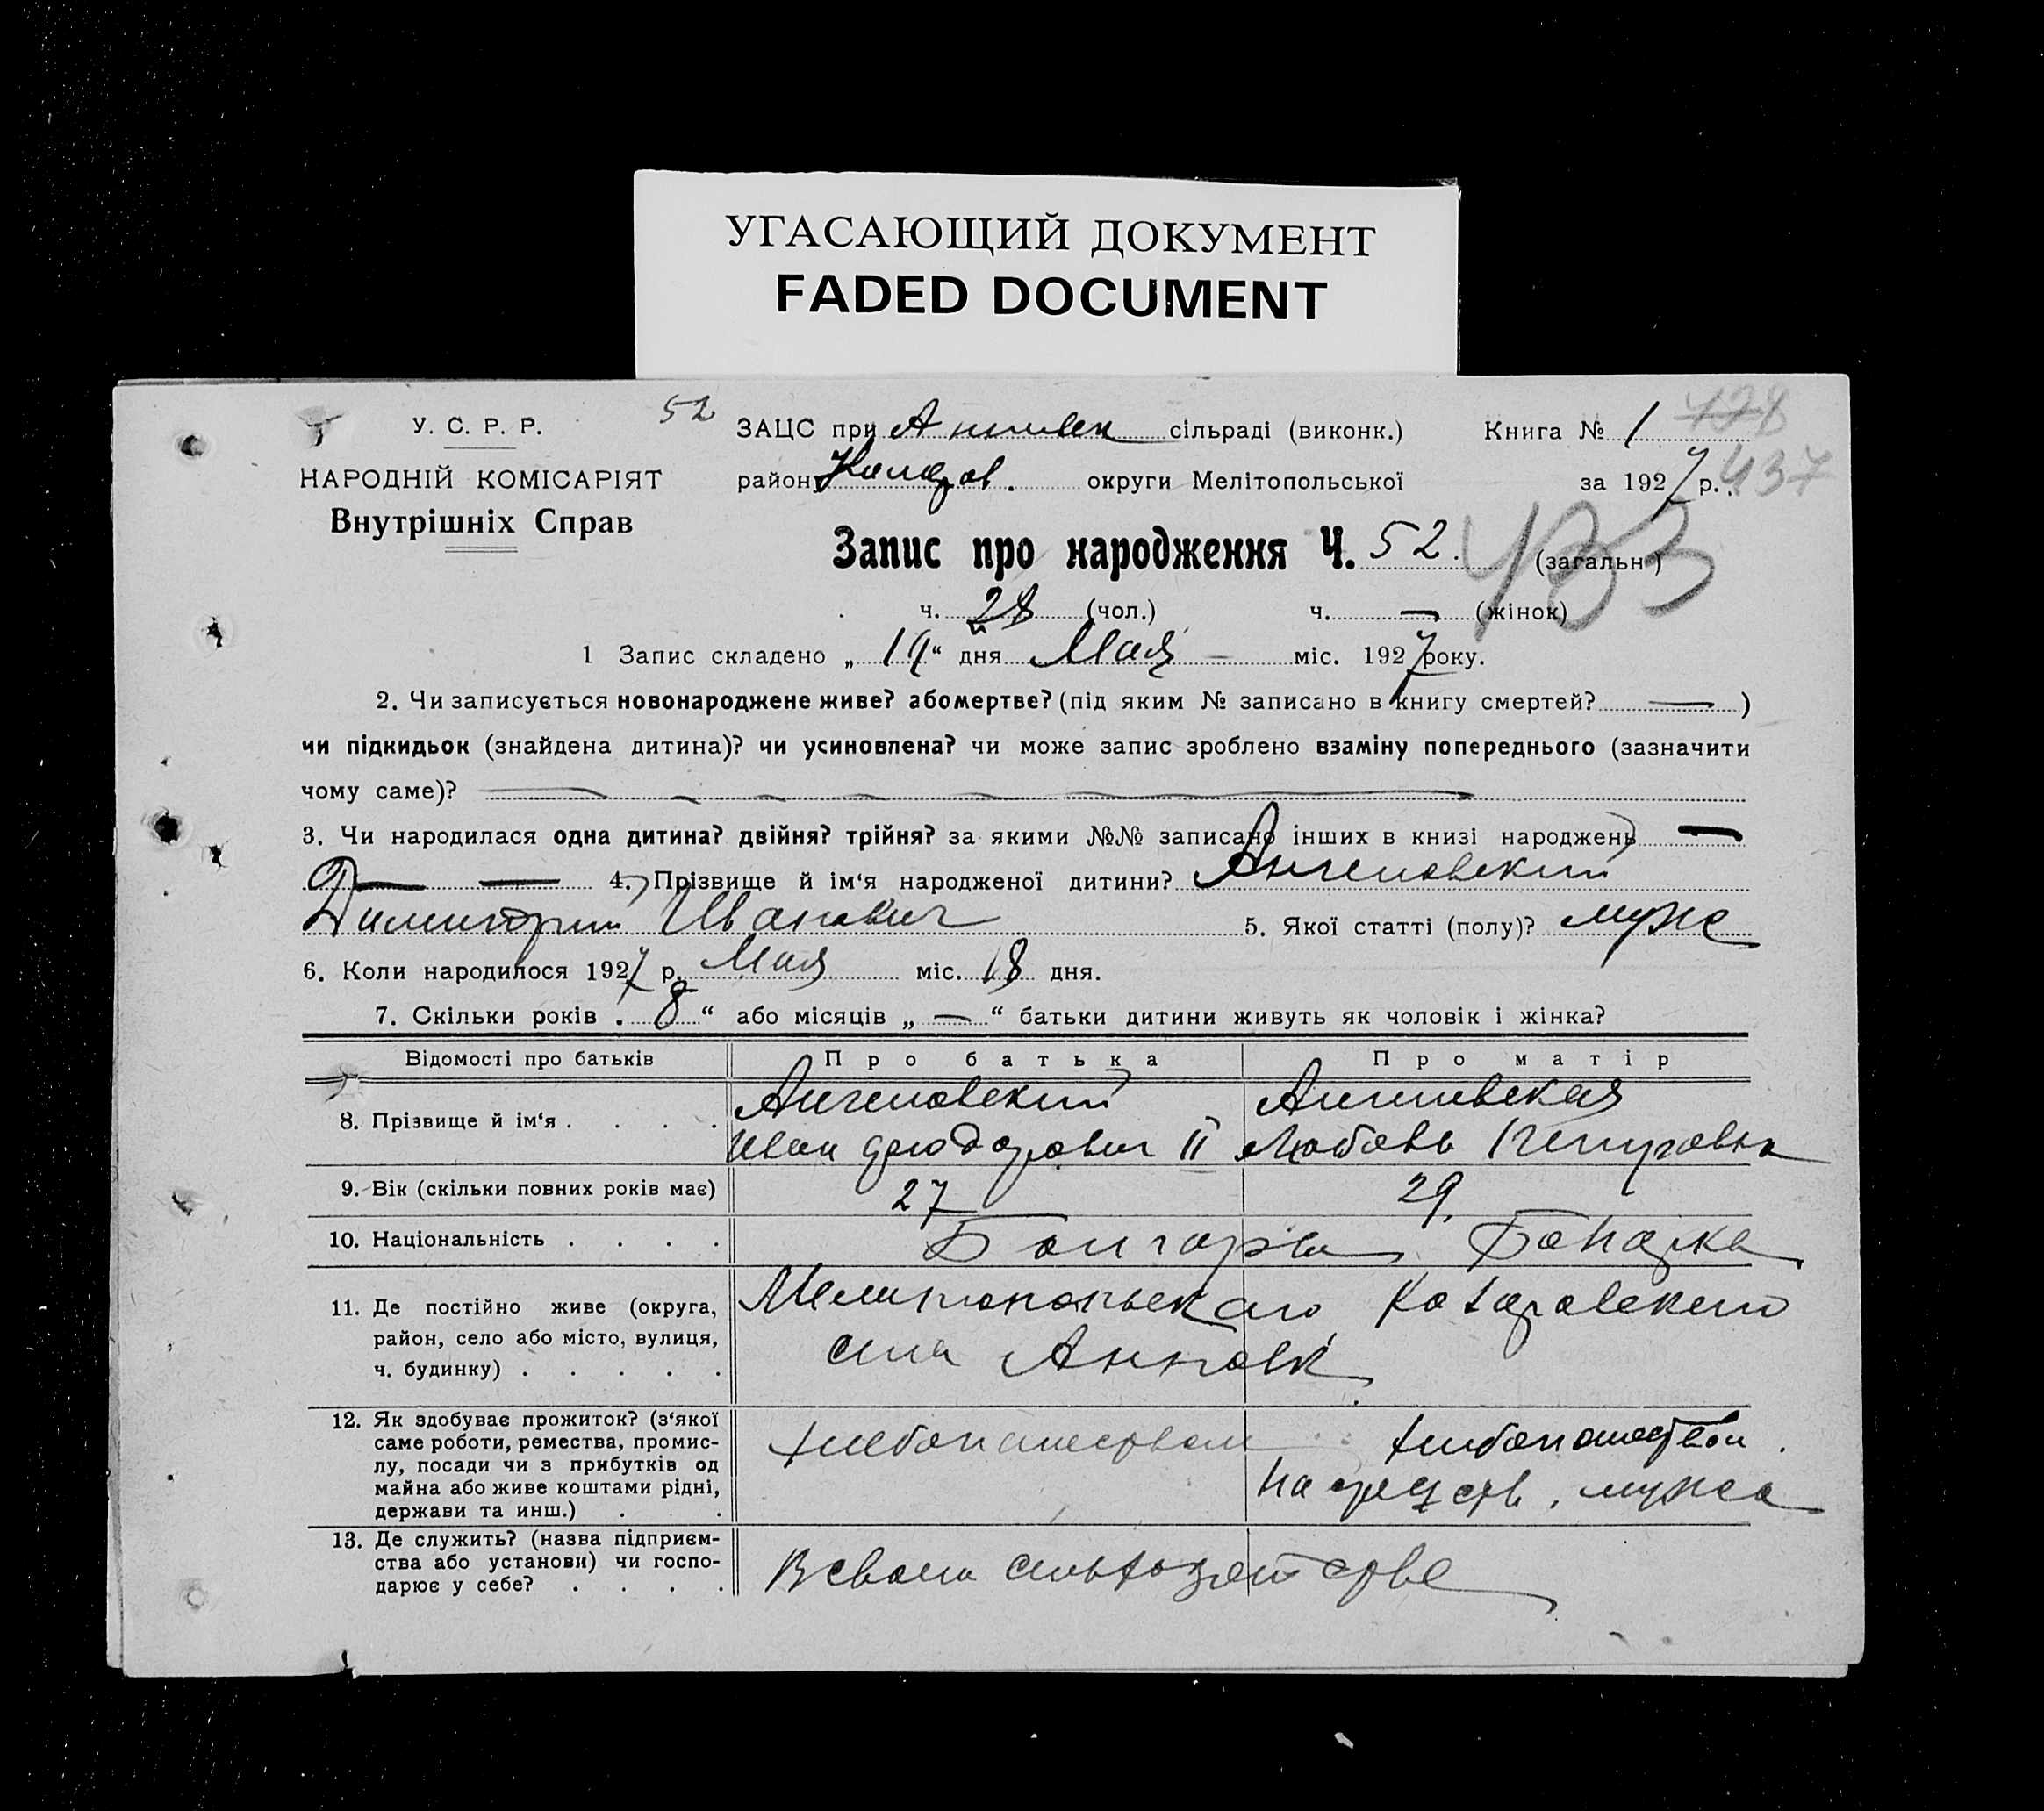 УГАСАЮЩИЙ ДОКУМЕНТ
FADED DOCUMENT
У. С. Р. Р.
НАРОДНІЙ КОМІСАРІЯТ
Внутрішніх Справ
52
ЗАЦС при сільраді (виконк.)
Книга № 1 428
району округи Мелітопольської
за 1927 р. 437
Запис про народження Ч. 52. (загальн)
433
ч. 28 (чол.) ч. — (жінок)
1 Запис складено „ 19 “ дня Мая — міс. 1927 року.
2. Чи записується новонароджене живе? або мертве? (під яким № записано в книгу смертей? — )
чи підкидьок (знайдена дитина)? чи усиновлена? чи може запис зроблено взаміну попереднього (зазначити
чому саме)?
3. Чи народилася одна дитина? двійня? трійня? за якими №№ записано інших в книзі народжень —
— — 4. Прізвище й ім‘я народженої дитини? Ангеловский
Димитрий Иванович 5. Якої статті (полу)? муже
6. Коли народилося 1927 р. Мая міс. 18 дня.
7. Скільки років . 8 “ або місяців „ — “ батьки дитини живуть як чоловік і жінка?
Відомості про батьків Про батька Про матір
8. Прізвище й ім‘я . . . . Ангеловский Ангеловская
Иван Фѐодорович II Любовь
9. Вік (скільки повних років має) 27 29.
10. Національність . . . .
11. Де постійно живе (округа,
район, село або місто, вулиця,
ч. будинку) . . . . .
Мелитопольскаго
села Анновк
12. Як здобуває прожиток? (з‘якої
саме роботи, ремества, промис-
лу, посади чи з прибутків од
майна або живе коштами рідні,
держави та инш.) . .
хлебопашеством хлебопашеством.
На средств. мужа
13. Де служить? (назва підприєм-
ства або установи) чи госпо-
дарює у себе? . . . .
В своем сельхозяйстве